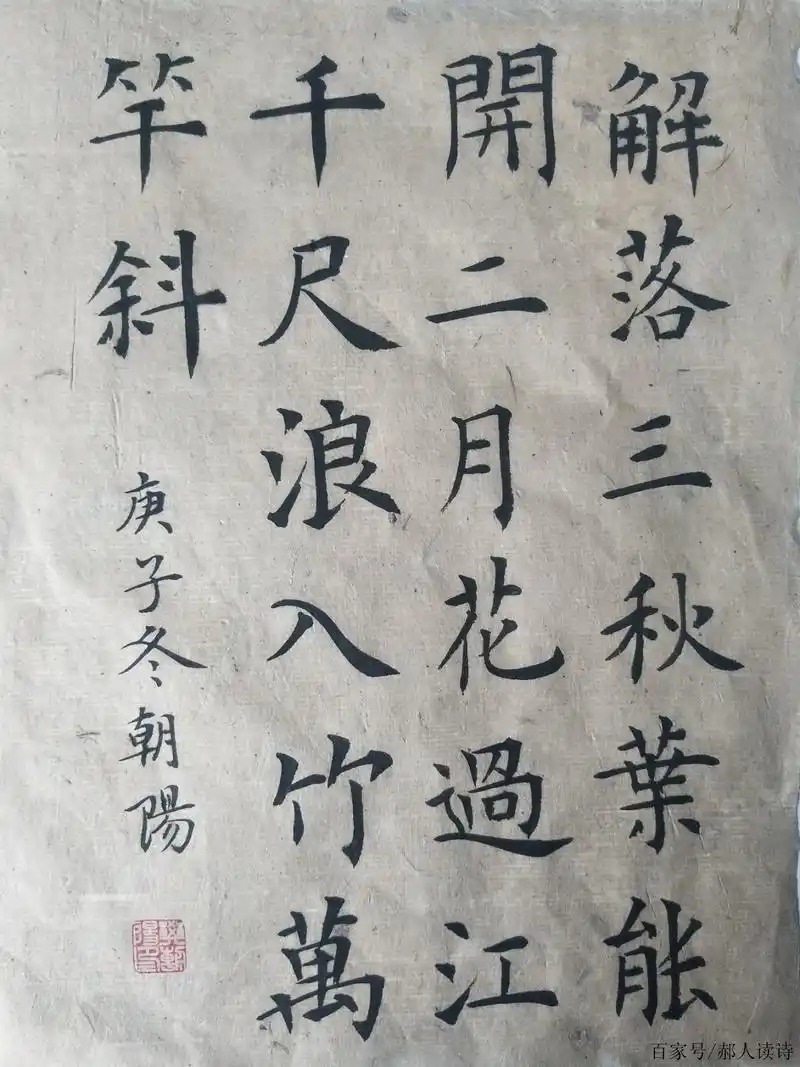 解落三秋葉能
開二月花過江
千尺浪入竹萬
竿斜
庚子冬朝陽
百家号/郝人读诗